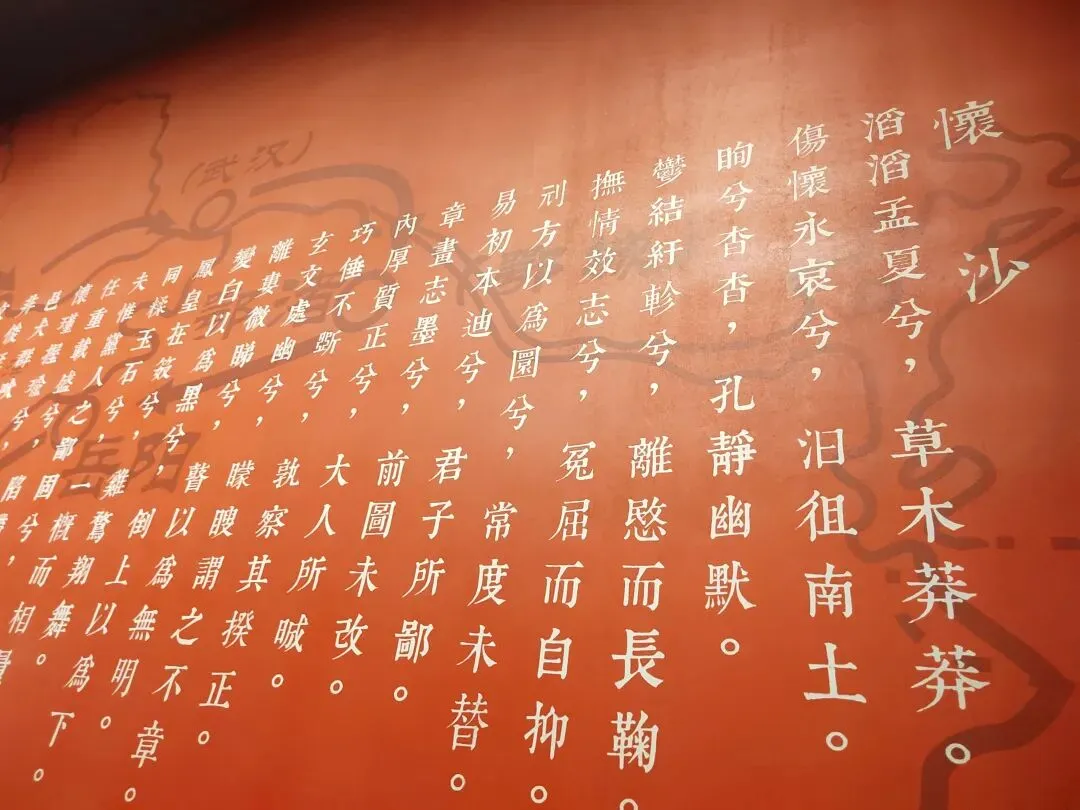 懷沙
滔滔孟夏兮，草木莽莽。
傷懷永哀兮，汨徂南土。
眴兮杳杳，孔靜幽默。
鬱結紆軫兮，離愍而長鞠。
撫情效志兮，冤屈而自抑。
刓方以為圜兮，常度未替。
易初本迪兮，君子所鄙。
章畫志墨兮，前圖未改。
內厚質正兮，大人所晠。
巧倕不斲兮，孰察其揆正。
玄文處幽兮，矇瞍謂之不章。
離婁微睇兮，瞽以為無明。
變白以為黑兮，倒上以為下。
鳳皇在笯兮，雞鶩翔舞。
同糅玉石兮，一概而相量
夫惟黨人之鄙固兮
任重載盛兮，陷
懷瑾握瑜兮
邑犬
(武汉)
岳阳